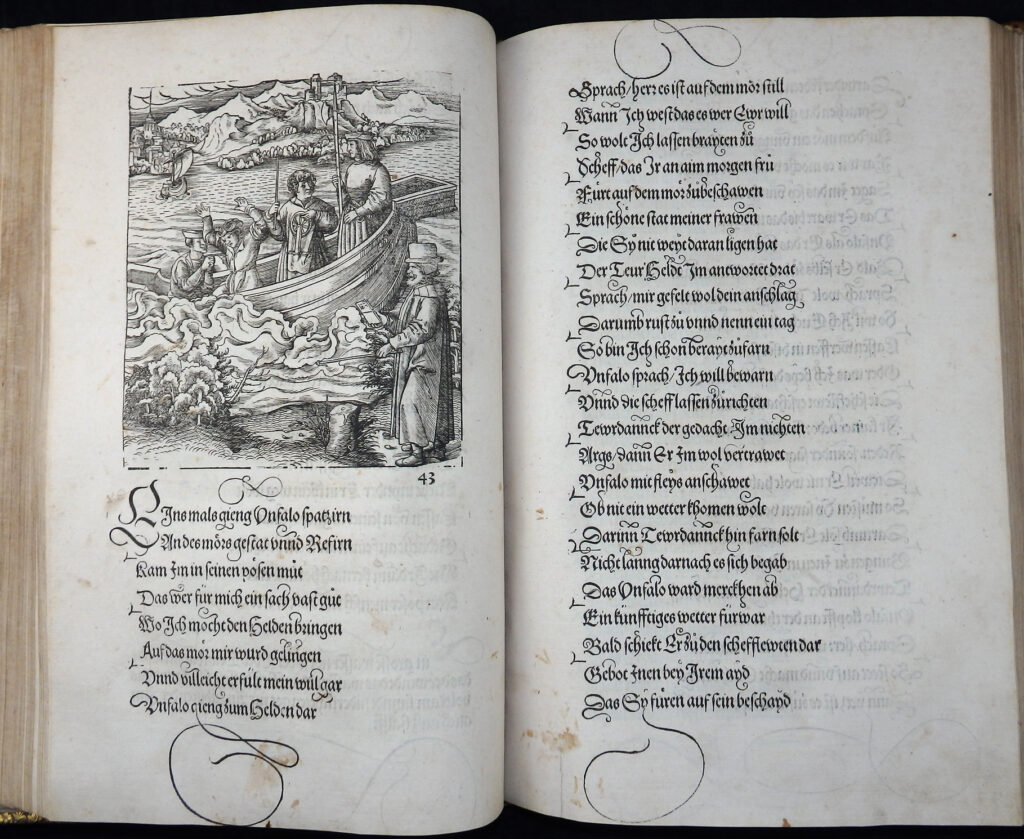 43
Eins mals gieng Unfalo spatzirn
An des mörs gestat unnd Refirn
Kam Im in seinen pösen müt
Das wer für mich ein sach vast güt
Wo Ich möcht den Helden bringen
Auf das mör mir wurd gelingen
Unnd villeicht erfült mein will gar
Unfalo gieng zum Helden dar
Sprach/herr es ist auf dem mör still
Wann Ich west das es wer Ewr will
So wolt Ich lassen brayten zü
Scheff/das Ir an aim morgen frü
Fürt auf dem mör zübeschawen
Ein schöne stat meiner frawen
Die Sy nit weyt daran ligen hat
Der Teur Held Im antwortet drat
Sprach/mir gefelt wol dein anschlag
Darumb rust zü unnd nenn ein tag
So bin Ich schon berayt züfarn
Unfalo sprach/Ich will bewarn
Unnd die scheff lassen zürichten
Tewrdannck der gedacht Im nichten
Args/dann Er Im wol vertrawet
Unfalo mit fleys anschawet
Ob nit ein wetter khomen wolt
Darinn Tewrdannck hin farn solt
Nicht lanng darnach es sich begab
Das Unfalo ward merckhen ab
Ein künfftiges wetter fürwar
Bald schickt Er zü den scheffлewten dar
Gebot Inen bey Irem ayd
Das Sy füren auf sein beschayd